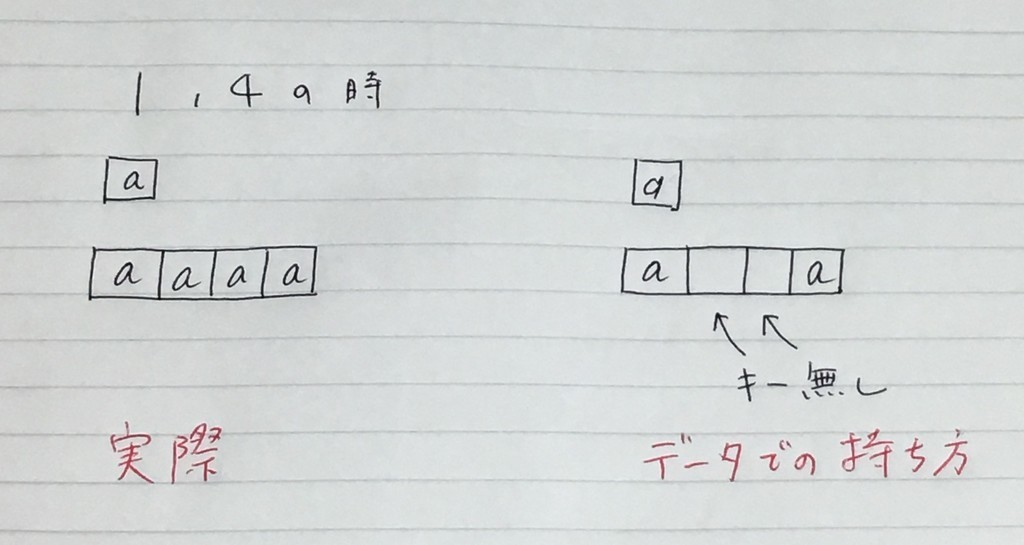 1,4の時
a a
a a a a a a
キー無し
実際 データでの持ち方